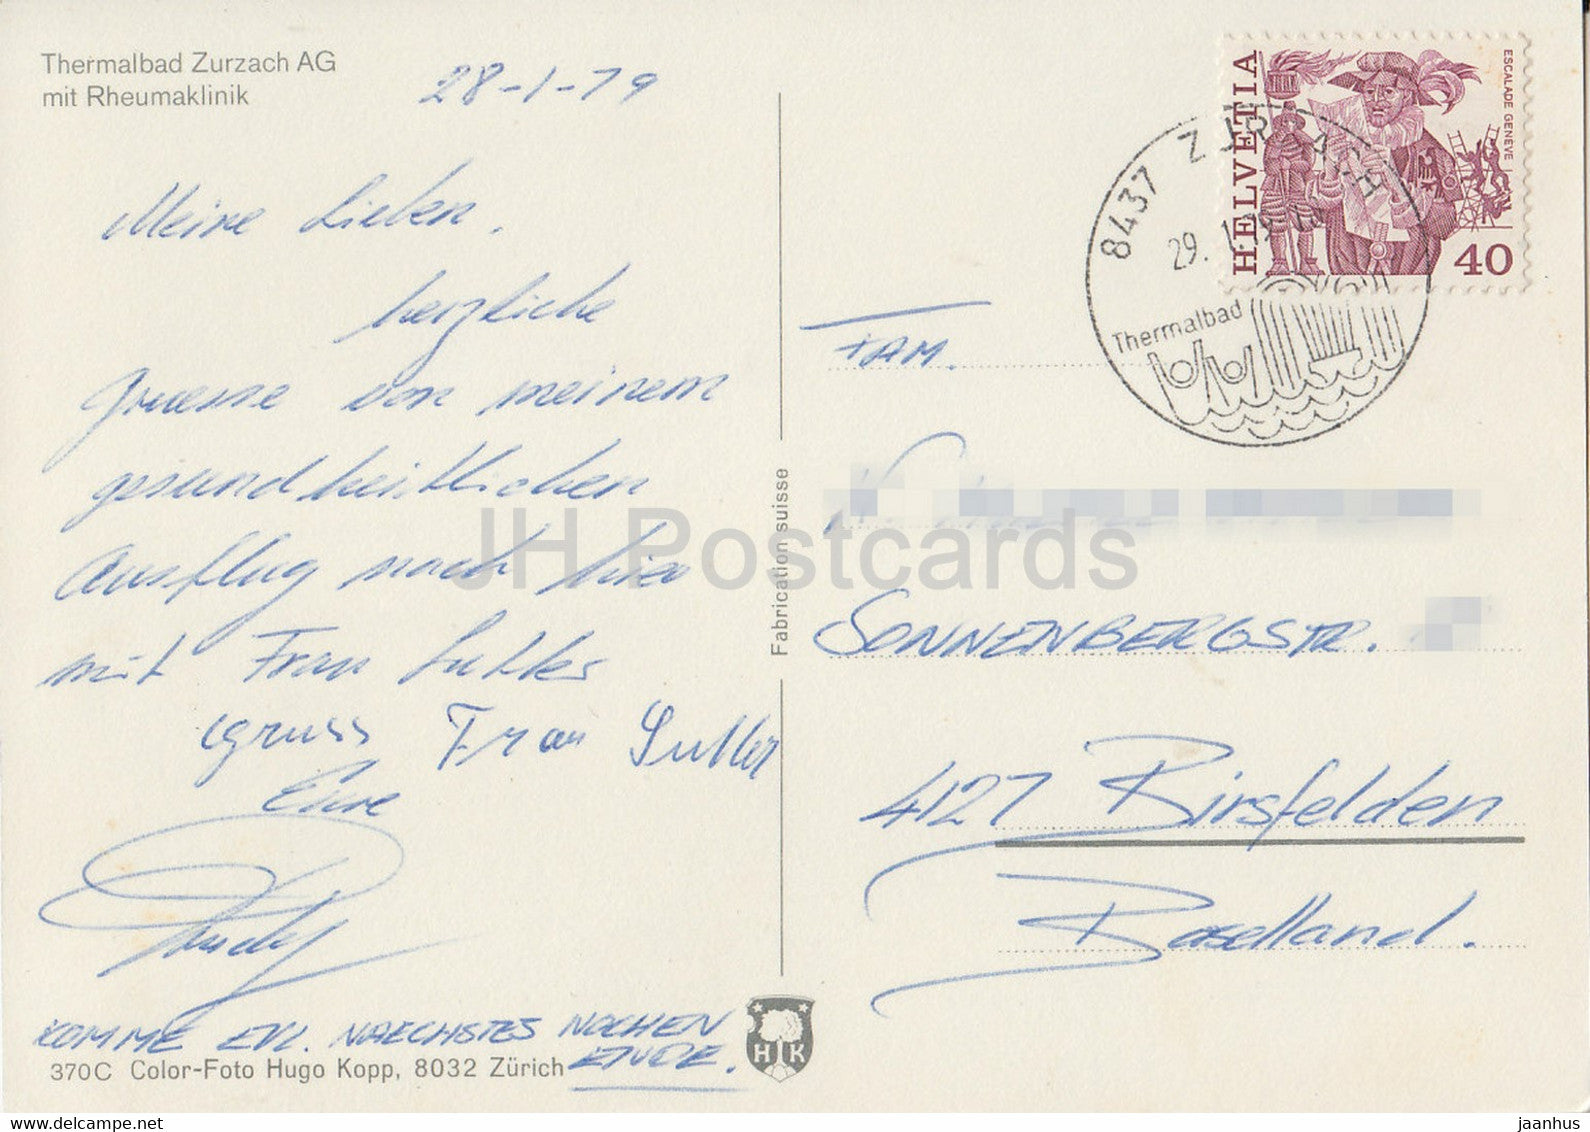 Thermalbad Zurzach AG
mit Rheumaklinik
28-1-79
Meine Lieben,
herzliche
Gruesse von meinem
gesundheitlichen
Ausflug nach hier
mit Frau Sutter
Gruss Frau Sutter
Eure
KOMME EVL. NAECHSTES WOCHEN
ENDE.
370C Color-Foto Hugo Kopp, 8032 Zürich
H K
Fabrication suisse
HELVETIA
ESCALADE GENÈVE
40
8437 ZURZACH
29. 1. 79
Thermalbad
FAM.
SONNENBERGSTR.
4127 Birsfelden
Baselland.
JH Postcards
www.delcampe.net
jaanhus